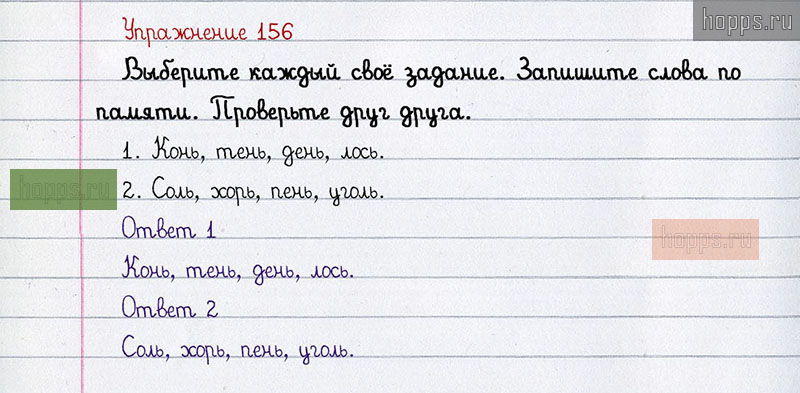 hopps.ru
Упражнение 156
Выберите каждый своё задание. Запишите слова по
памяти. Проверьте друг друга.
1. Конь, тень, день, лось.
hopps.ru
2. Соль, хорь, пень, уголь.
Ответ 1
hopps.ru
Конь, тень, день, лось.
Ответ 2
Соль, хорь, пень, уголь.